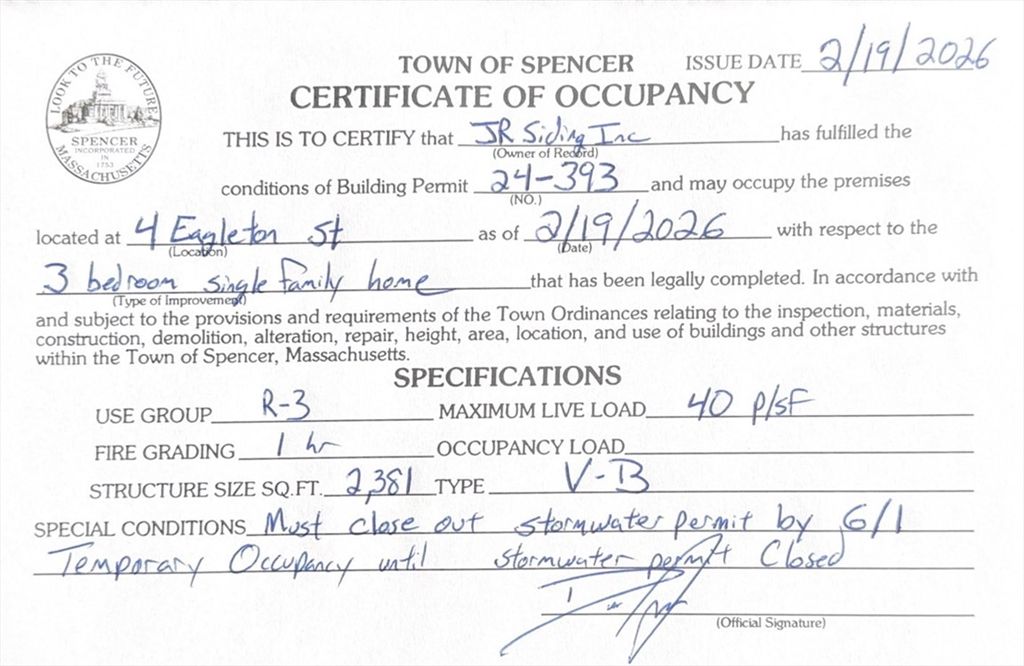 LOOK TO THE FUTURE
SPENCER
INCORPORATED
IN
1753
MASSACHUSETTS
TOWN OF SPENCER ISSUE DATE 2/19/2026
CERTIFICATE OF OCCUPANCY
THIS IS TO CERTIFY that JR Siding Inc has fulfilled the
(Owner of Record)
conditions of Building Permit 24-393 and may occupy the premises
(NO.)
located at 4 Eagleton St as of 2/19/2026 with respect to the
(Location) (Date)
3 bedroom single family home that has been legally completed. In accordance with
(Type of Improvement)
and subject to the provisions and requirements of the Town Ordinances relating to the inspection, materials,
construction, demolition, alteration, repair, height, area, location, and use of buildings and other structures
within the Town of Spencer, Massachusetts.
SPECIFICATIONS
USE GROUP R-3 MAXIMUM LIVE LOAD 40 P/SF
FIRE GRADING 1 hr OCCUPANCY LOAD
STRUCTURE SIZE SQ.FT. 2,381 TYPE V-B
SPECIAL CONDITIONS Must close out stormwater permit by 6/1
Temporary Occupancy until stormwater permit Closed
(Official Signature)